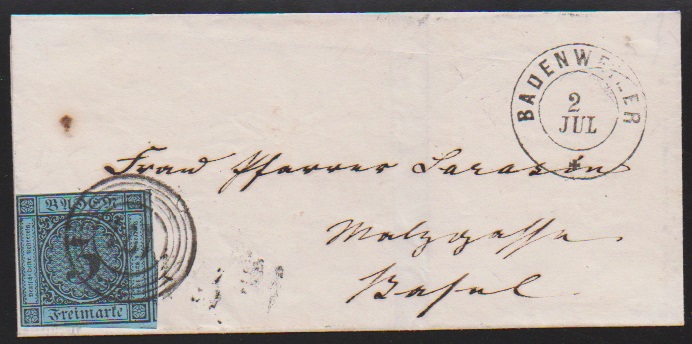 BADENWEILER
2
JUL
Frau Pfarrer Sarasin
Malzgasse
Basel.
BADEN
3
Freimarke